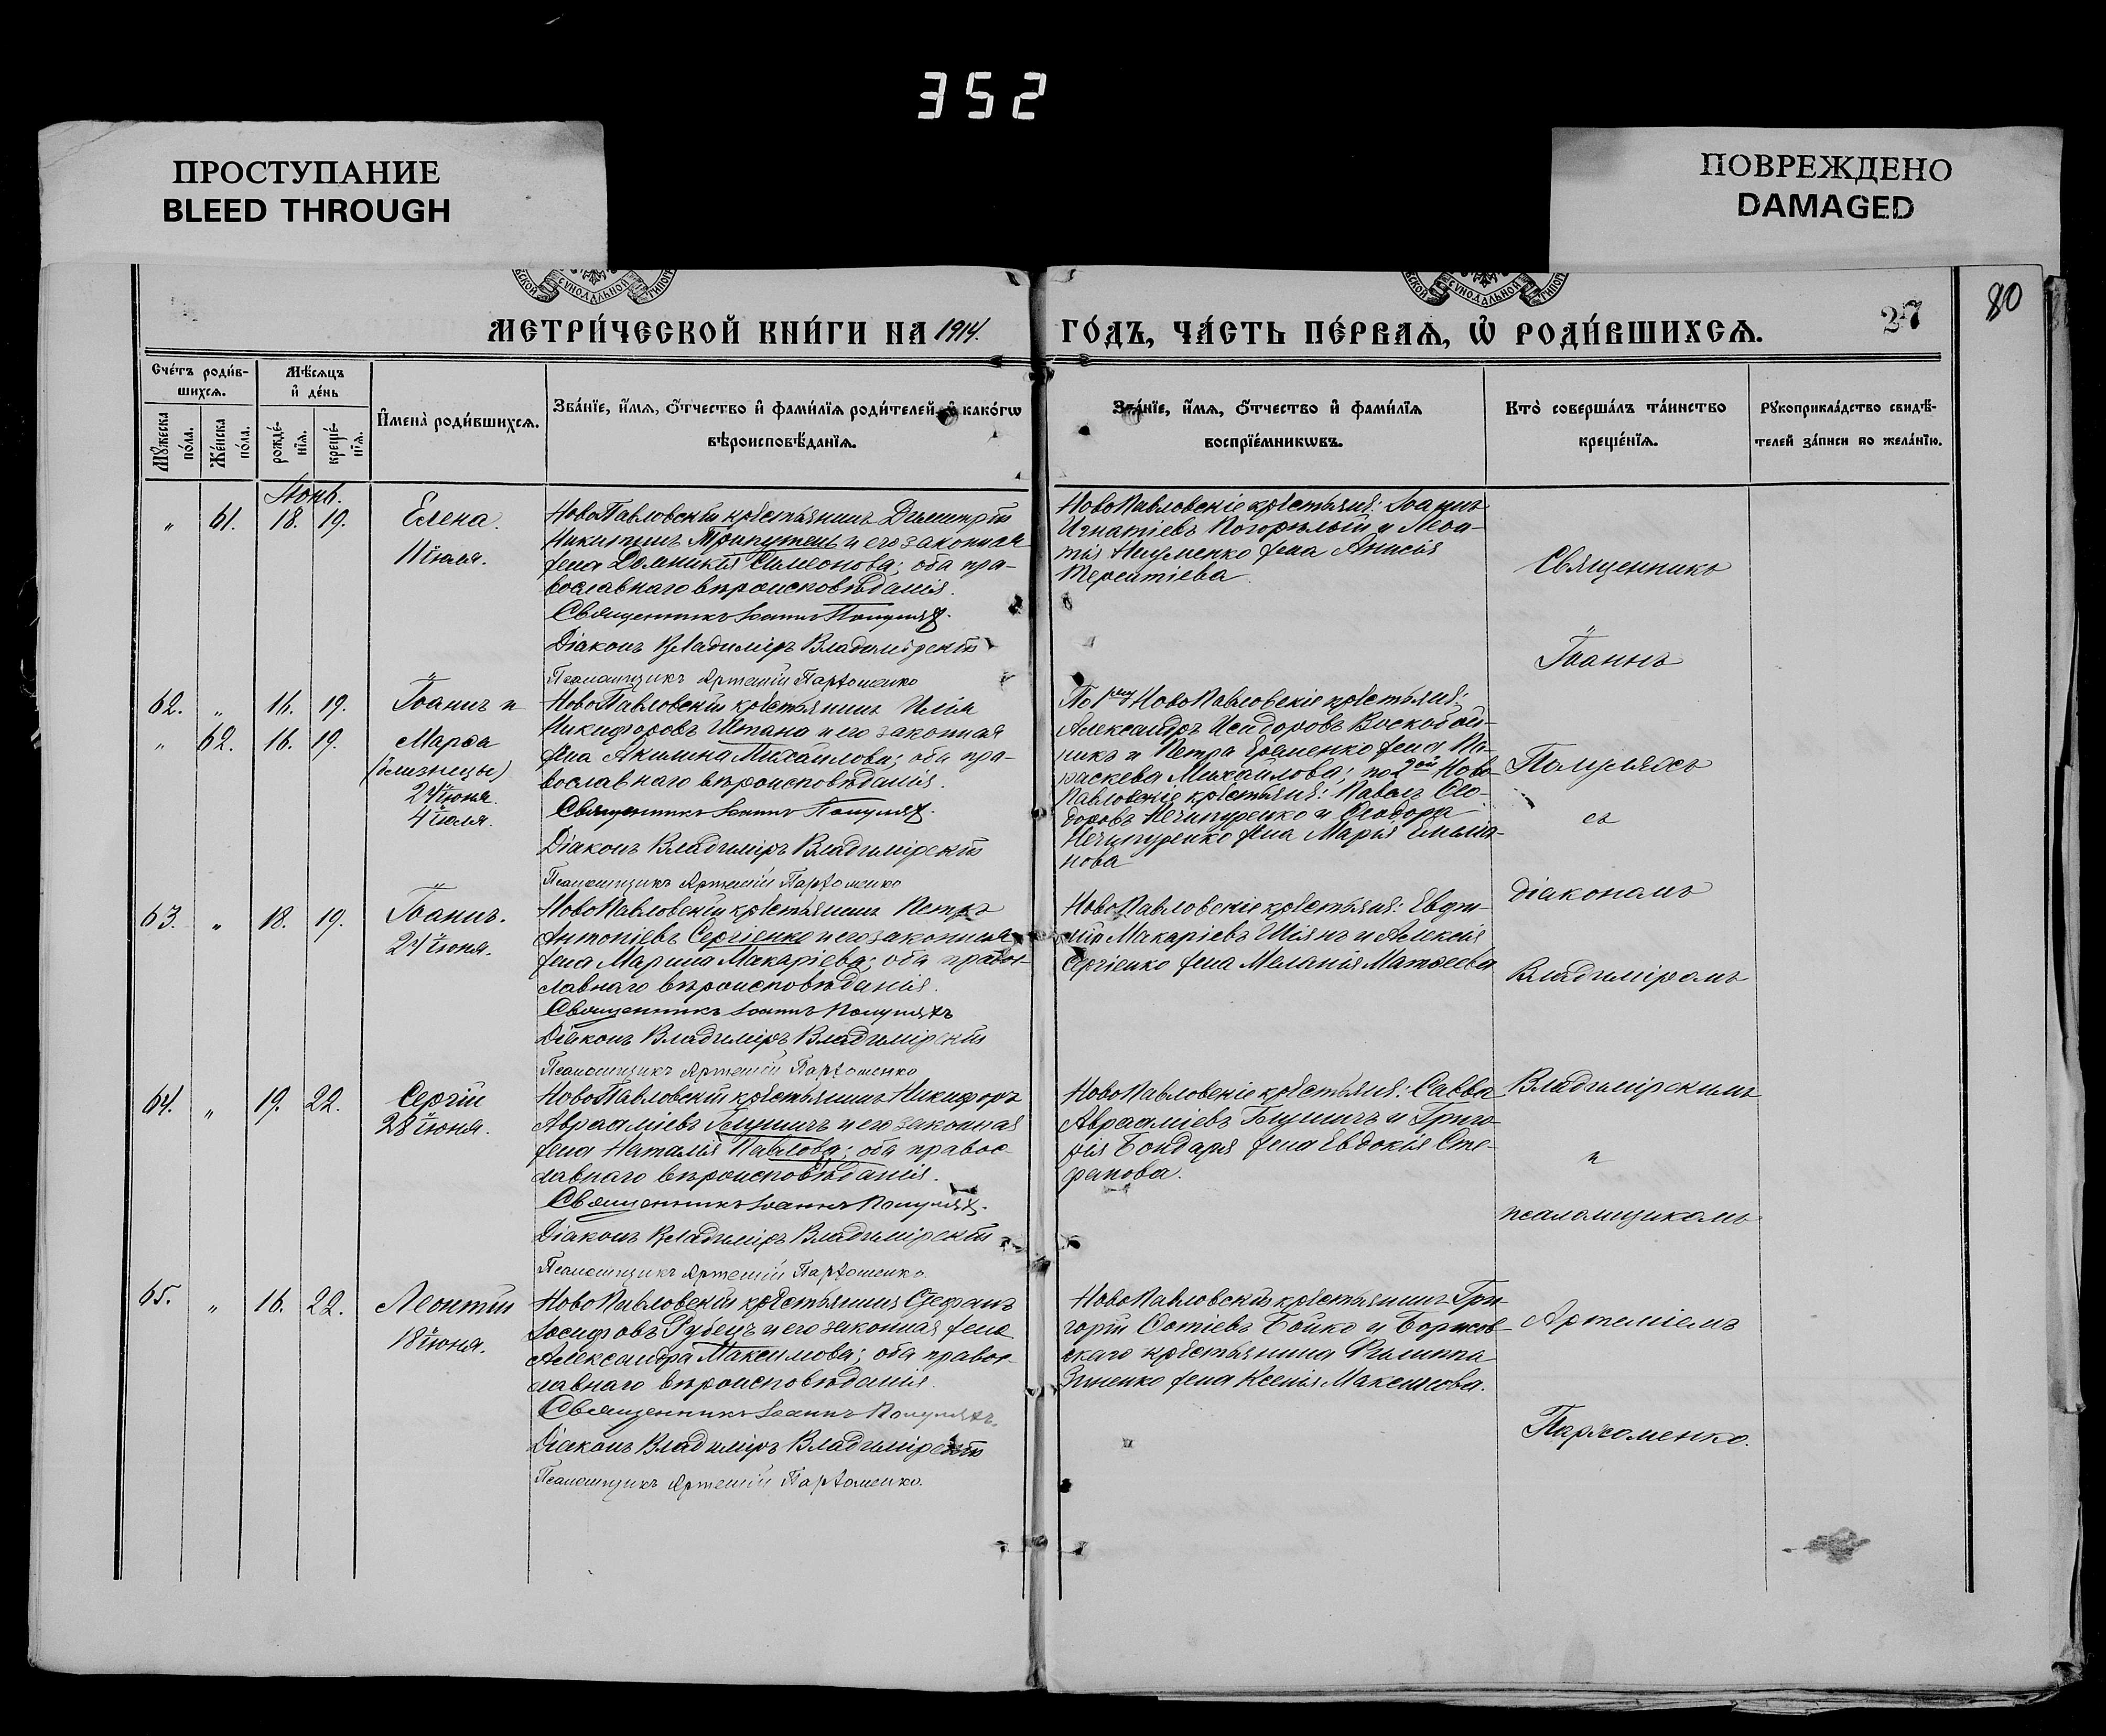 352
ПРОСТУПАНИЕ
BLEED THROUGH
ПОВРЕЖДЕНО
DAMAGED
МЕТРИ́ЧЕСКОЙ КНИ́ГИ НА 1914.
ГО́ДЪ, ЧА́СТЬ ПЕ́РВАѦ, Ѽ РОДИ́ВШИХСѦ.
27
80
Сче́тъ роди́в-
шихсѧ.
Мѣ́сѧцъ
и҆ де́нь
Мꙋ́жеска
по́ла.
Же́нска
по́ла.
рожде́-
нїѧ.
креще́-
нїѧ.
И҆мена̀ роди́вшихсѧ.
Зва́нїе, и҆́мѧ, ѻ҆́тчество и҆ фами́лїѧ роди́телей, и҆ како́гѡ
вѣроисповѣ́данїѧ.
Зва́нїе, и҆́мѧ, ѻ҆́тчество и҆ фами́лїѧ
воспрїе́мникѡвъ.
Кто̀ соверша́лъ та́инство
креще́нїѧ.
Рꙋкоприкла́дство свидѣ́-
телей за́писи по жела́нїю.
Іюнь.
" 61. 18. 19. Елена.
11 іюля.
НовоПавловскій крестьянинъ Димитрій
Никитинъ Трипутень и его законная
жена Домникія Симеонова; оба пра-
вославнаго вѣроисповѣданія.
Священникъ Іоаннъ
Діаконъ Владиміръ Владимірскій
Псаломщикъ Артемій Пархоменко
НовоПавловскіе крестьяне: Іоаннъ
Игнатіевъ Погорѣлый и Леон-
тія Науменко жена Анисія
Терентіева.
62. " 16. 19. Іоаннъ и
" 62. 16. 19. Марѳа
(близнецы)
24 іюня.
4 іюля.
НовоПавловскій крестьянинъ Илія
Никифоровъ Штана и его законная
жена Акилина Михаилова; оба пра-
вославнаго вѣроисповѣданія.
Священникъ Іоаннъ
Діаконъ Владиміръ Владимірскій
Псаломщикъ Артемій Пархоменко
По 1му НовоПавловскіе крестьяне:
Александръ Исидоровъ Воскобой-
никъ и Петра Еременко жена Па-
раскева Михайлова; по 2ой Ново-
Павловскіе крестьяне: Павелъ Ѳео-
доровъ Нечипуренко и Ѳеодора
Нечипуренко жена Марія Емелія-
нова
63. " 18. 19. Іоаннъ.
24 іюня.
НовоПавловскій крестьянинъ Петръ
Антоніевъ Сергіенко и его законная
жена Марина Макаріева; оба правос-
лавнаго вѣроисповѣданія.
Священникъ Іоаннъ
Діаконъ Владиміръ Владимірскій
Псаломщикъ Артемій Пархоменко
НовоПавловскіе крестьяне: Евфи-
мій Макаріевъ Шіянъ и Алексія
Сергіенко жена Меланія Матѳеева
64. " 19. 22. Сергій
28 іюня.
НовоПавловскій крестьянинъ Никифоръ
Авраміевъ и его законная
жена Наталія Павлова; оба правос-
лавнаго вѣроисповѣданія.
Священникъ Іоаннъ
Діаконъ Владиміръ Владимірскій
Псаломщикъ Артемій Пархоменко.
НовоПавловскіе крестьяне: Савва
Авраміевъ и Григо-
рія Бондаря жена Евдокія Сте-
фанова.
65. " 16. 22. Леонтій
18 іюня.
НовоПавловскій крестьянинъ Стефанъ
Іосифовъ Губецъ и его законная жена
Александра Максимова; оба правос-
лавнаго вѣроисповѣданія.
Священникъ Іоаннъ
Діаконъ Владиміръ Владимірскій
Псаломщикъ Артемій Пархоменко.
НовоПавловскій крестьянинъ Гри-
горій Бойко и
крестьянина Филиппа
жена Ксенія Максимова.
Священникъ
Іоаннъ
съ
діакономъ
Владиміромъ
Владимірскимъ
и
псаломщикомъ
Артеміемъ
Пархоменко.